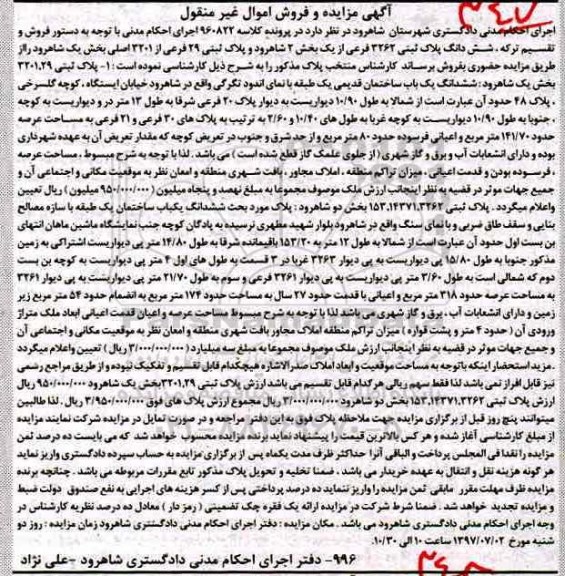 ۳۴۷
آگهی مزایده و فروش اموال غیر منقول
اجرای احکام مدنی دادگستری شهرستان شاهرود در نظر دارد در پرونده کلاسه ۹۶۰۸۲۲ اجرای احکام مدنی با توجه به دستور فروش و
تقسیم ترکه ، شش دانگ پلاک ثبتی ۳۲۶۲ فرعی از یک بخش ۲ شاهرود و پلاک ثبتی ۲۹ فرعی از ۳۲۰۱ اصلی بخش یک شاهرود رااز
طریق مزایده حضوری بفروش برساند کارشناس منتخب پلاک مذکور را به شرح ذیل کارشناسی نموده است : ۱- پلاک ثبتی ۳۲۰۱،۲۹
بخش یک شاهرود : ششدانگ یک باب ساختمان قدیمی یک طبقه با نمای اندود تگرگی واقع در شاهرود خیابان ایستگاه ، کوچه گلسرخی
، پلاک ۴۸ حدود آن عبارت است از شمالا به طول ۱۰/۹۰ دیواریست به دیوار پلاک ۲۰ فرعی شرقا به طول ۱۳ متر در و دیواریست به کوچه
، جنوبا به طول ۱۰/۹۰ دیواریست به کوچه غربا به طول های ۱۰/۴۰ و ۲/۶۰ به ترتیب به پلاک های ۳۰ فرعی و ۲۱ فرعی به مساحت عرصه
۱۴۱/۷۰ متر مربع و اعیانی فرسوده حدود ۸۰ متر مربع و از حد شرق و جنوب در تعریض کوچه که مقدار تعریض آن به عهده شهرداری
بوده و دارای انشعابات آب و برق و گاز شهری ( از جلوی علمک گاز قطع شده است ) می باشد . لذا با توجه به شرح مبسوط ، مساحت عرصه
، فرسوده بودن و قدمت اعیانی ، میزان تراکم منطقه ، املاک مجاور ، بافت شهری منطقه و امعان نظر به موقعیت مکانی و اجتماعی آن و
جمیع جهات موثر در قضیه به نظر اینجانب ارزش ملک موصوف مجموعا به مبلغ نهصد و پنجاه میلیون ( ۹۵۰/۰۰۰/۰۰۰ میلیون ) ریال تعیین
واعلام میگردد . پلاک ثبتی ۱۵۳،۱۴۳۷۱،۳۲۶۲ بخش دو شاهرود : پلاک مورد بحث ششدانگ یکباب ساختمان یک طبقه با سازه مصالح
بنایی و سقف طاق ضربی و با نمای سنگ واقع در شاهرود بلوار شهید مطهری نرسیده به پادگان کوچه جنب نمایشگاه ماشین ماهان انتهای
بن بست اول حدود آن عبارت است از شمالا به طول ۱۲ متر به ۱۵۳/۲۰ باقیمانده شرقا به طول ۱۴/۸۰ متر پی دیواریست اشتراکی به زمین
مذکور جنوبا به طول ۱۵/۸۰ پی دیواریست به پی دیوار ۳۲۶۳ غربا در ۳ قسمت به طول های اول ۴ متر پی دیواریست به کوچه بن بست
دوم که شمالی است به طول ۳/۶۰ متر پی دیواریست به پی دیوار ۳۲۶۱ فرعی و سوم به طول ۲۱/۷۰ متر پی دیواریست به پی دیوار ۳۲۶۱
به مساحت عرصه حدود ۳۱۸ متر مربع و اعیانی با قدمت حدود ۲۷ سال به مساحت حدود ۱۷۴ متر مربع به انضمام حدود ۵۴ متر مربع زیر
زمین و دارای انشعابات آب ، برق و گاز شهری می باشد لذا با توجه به شرح مبسوط مساحت عرصه و اعیان قدمت اعیانی ابعاد ملک متراژ
ورودی آن ( حدود ۴ متر و پشت قواره ) میزان تراکم منطقه املاک مجاور بافت شهری منطقه و امعان نظر به موقعیت مکانی و اجتماعی آن
و جمیع جهات موثر در قضیه به نظر اینجانب ارزش ملک موصوف مجموعا به مبلغ سه میلیارد ( ۳/۰۰۰/۰۰۰/۰۰۰ ریال ) تعیین واعلام میگردد
. مزید استحضار اینکه باتوجه به مساحت موقعیت و ابعاد املاک صدرالاشاره هیچکدام قابل تقسیم و تفکیک نبوده و از طریق مراجع رسمی
نیز قابل افراز نمی باشد لذا فقط سهم ریالی هر کدام قابل تقسیم می باشد ارزش پلاک ثبتی ۳۲۰۱،۲۹ بخش یک شاهرود ۹۵۰/۰۰۰/۰۰۰ ریال
ارزش پلاک ثبتی ۱۵۳،۱۴۳۷۱،۳۲۶۲ بخش دو شاهرود ۳/۰۰۰/۰۰۰/۰۰۰ ریال مجموع ارزش پلاک های فوق ۳/۹۵۰/۰۰۰/۰۰۰ ریال . لذا طالبین
میتوانند پنج روز قبل از برگزاری مزایده جهت ملاحظه پلاک فوق به این دفتر مراجعه و در صورت تمایل در مزایده شرکت نمایند مزایده
از مبلغ کارشناسی آغاز شده و هر کس بالاترین قیمت را پیشنهاد نماید برنده مزایده محسوب خواهد شد که می بایست ده درصد ثمن
مزایده را نقدا فی المجلس پرداخت و الباقی آنرا حداکثر ظرف مدت یکماه پس از برگزاری مزایده به حساب سپرده دادگستری واریز نماید
هر گونه هزینه نقل و انتقال به عهده خریدار می باشد . ضمنا تخلیه و تحویل پلاک مذکور تابع مقررات مربوطه می باشد . چنانچه برنده
مزایده ظرف مهلت مقرر مابقی ثمن مزایده را واریز ننماید ده درصد پرداختی پس از کسر هزینه های اجرایی به نفع صندوق دولت ضبط
و مزایده تجدید خواهد شد . ضمنا شرط شرکت در مزایده ارائه یک فقره چک تضمینی ( رمز دار ) معادل ده درصد نظریه کارشناس در
وجه اجرای احکام مدنی دادگستری شاهرود می باشد . مکان مزایده : دفتر اجرای احکام مدنی دادگستری شاهرود زمان مزایده : روز دو
شنبه مورخ ۱۳۹۷/۰۷/۰۲ ساعت ۱۰ الی ۱۰/۳۰.
۹۹۶- دفتر اجرای احکام مدنی دادگستری شاهرود -علی نژاد